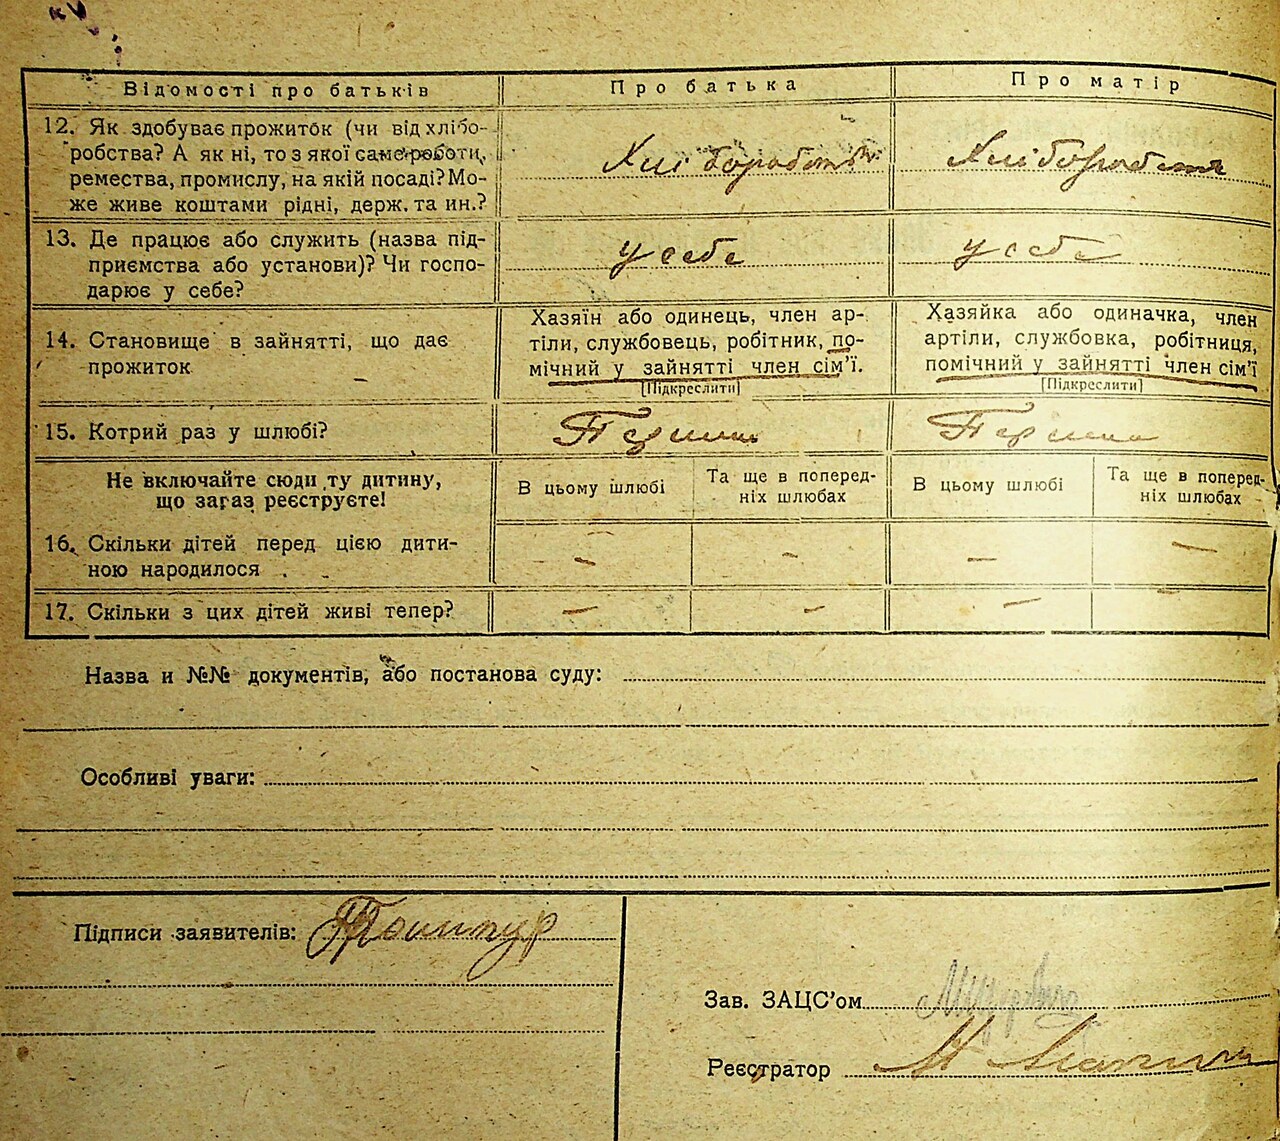 Відомості про батьків
Про батька
Про матір
12. Як здобуває прожиток (чи від хлібо-
робства? А як ні, то з якої саме роботи,
ремества, промислу, на якій посаді? Мо-
же живе коштами рідні, держ. та ин.?
Хліборобств
Хліборобств
13. Де працює або служить (назва під-
приємства або установи)? Чи госпо-
дарює у себе?
у себе
у себе
14. Становище в зайнятті, що дає
прожиток
Хазяїн або одинець, член ар-
тіли, службовець, робітник, по-
мічний у зайнятті член сім'ї.
[Підкреслити]
Хазяйка або одиначка, член
артіли, службовка, робітниця,
помічний у зайнятті член сім'ї
[Підкреслити]
15. Котрий раз у шлюбі?
Перший
Перший
Не включайте сюди ту дитину,
що загаз реєструєте!
В цьому шлюбі
Та ще в поперед-
ніх шлюбах
В цьому шлюбі
Та ще в поперед-
ніх шлюбах
16. Скільки дітей перед цією дити-
ною народилося . .
–
–
–
–
17. Скільки з цих дітей живі тепер?
–
–
–
–
Назва и №№ документів, або постанова суду:
Особливі уваги:
Підписи заявителів:
Зав. ЗАЦС'ом
Реєстратор